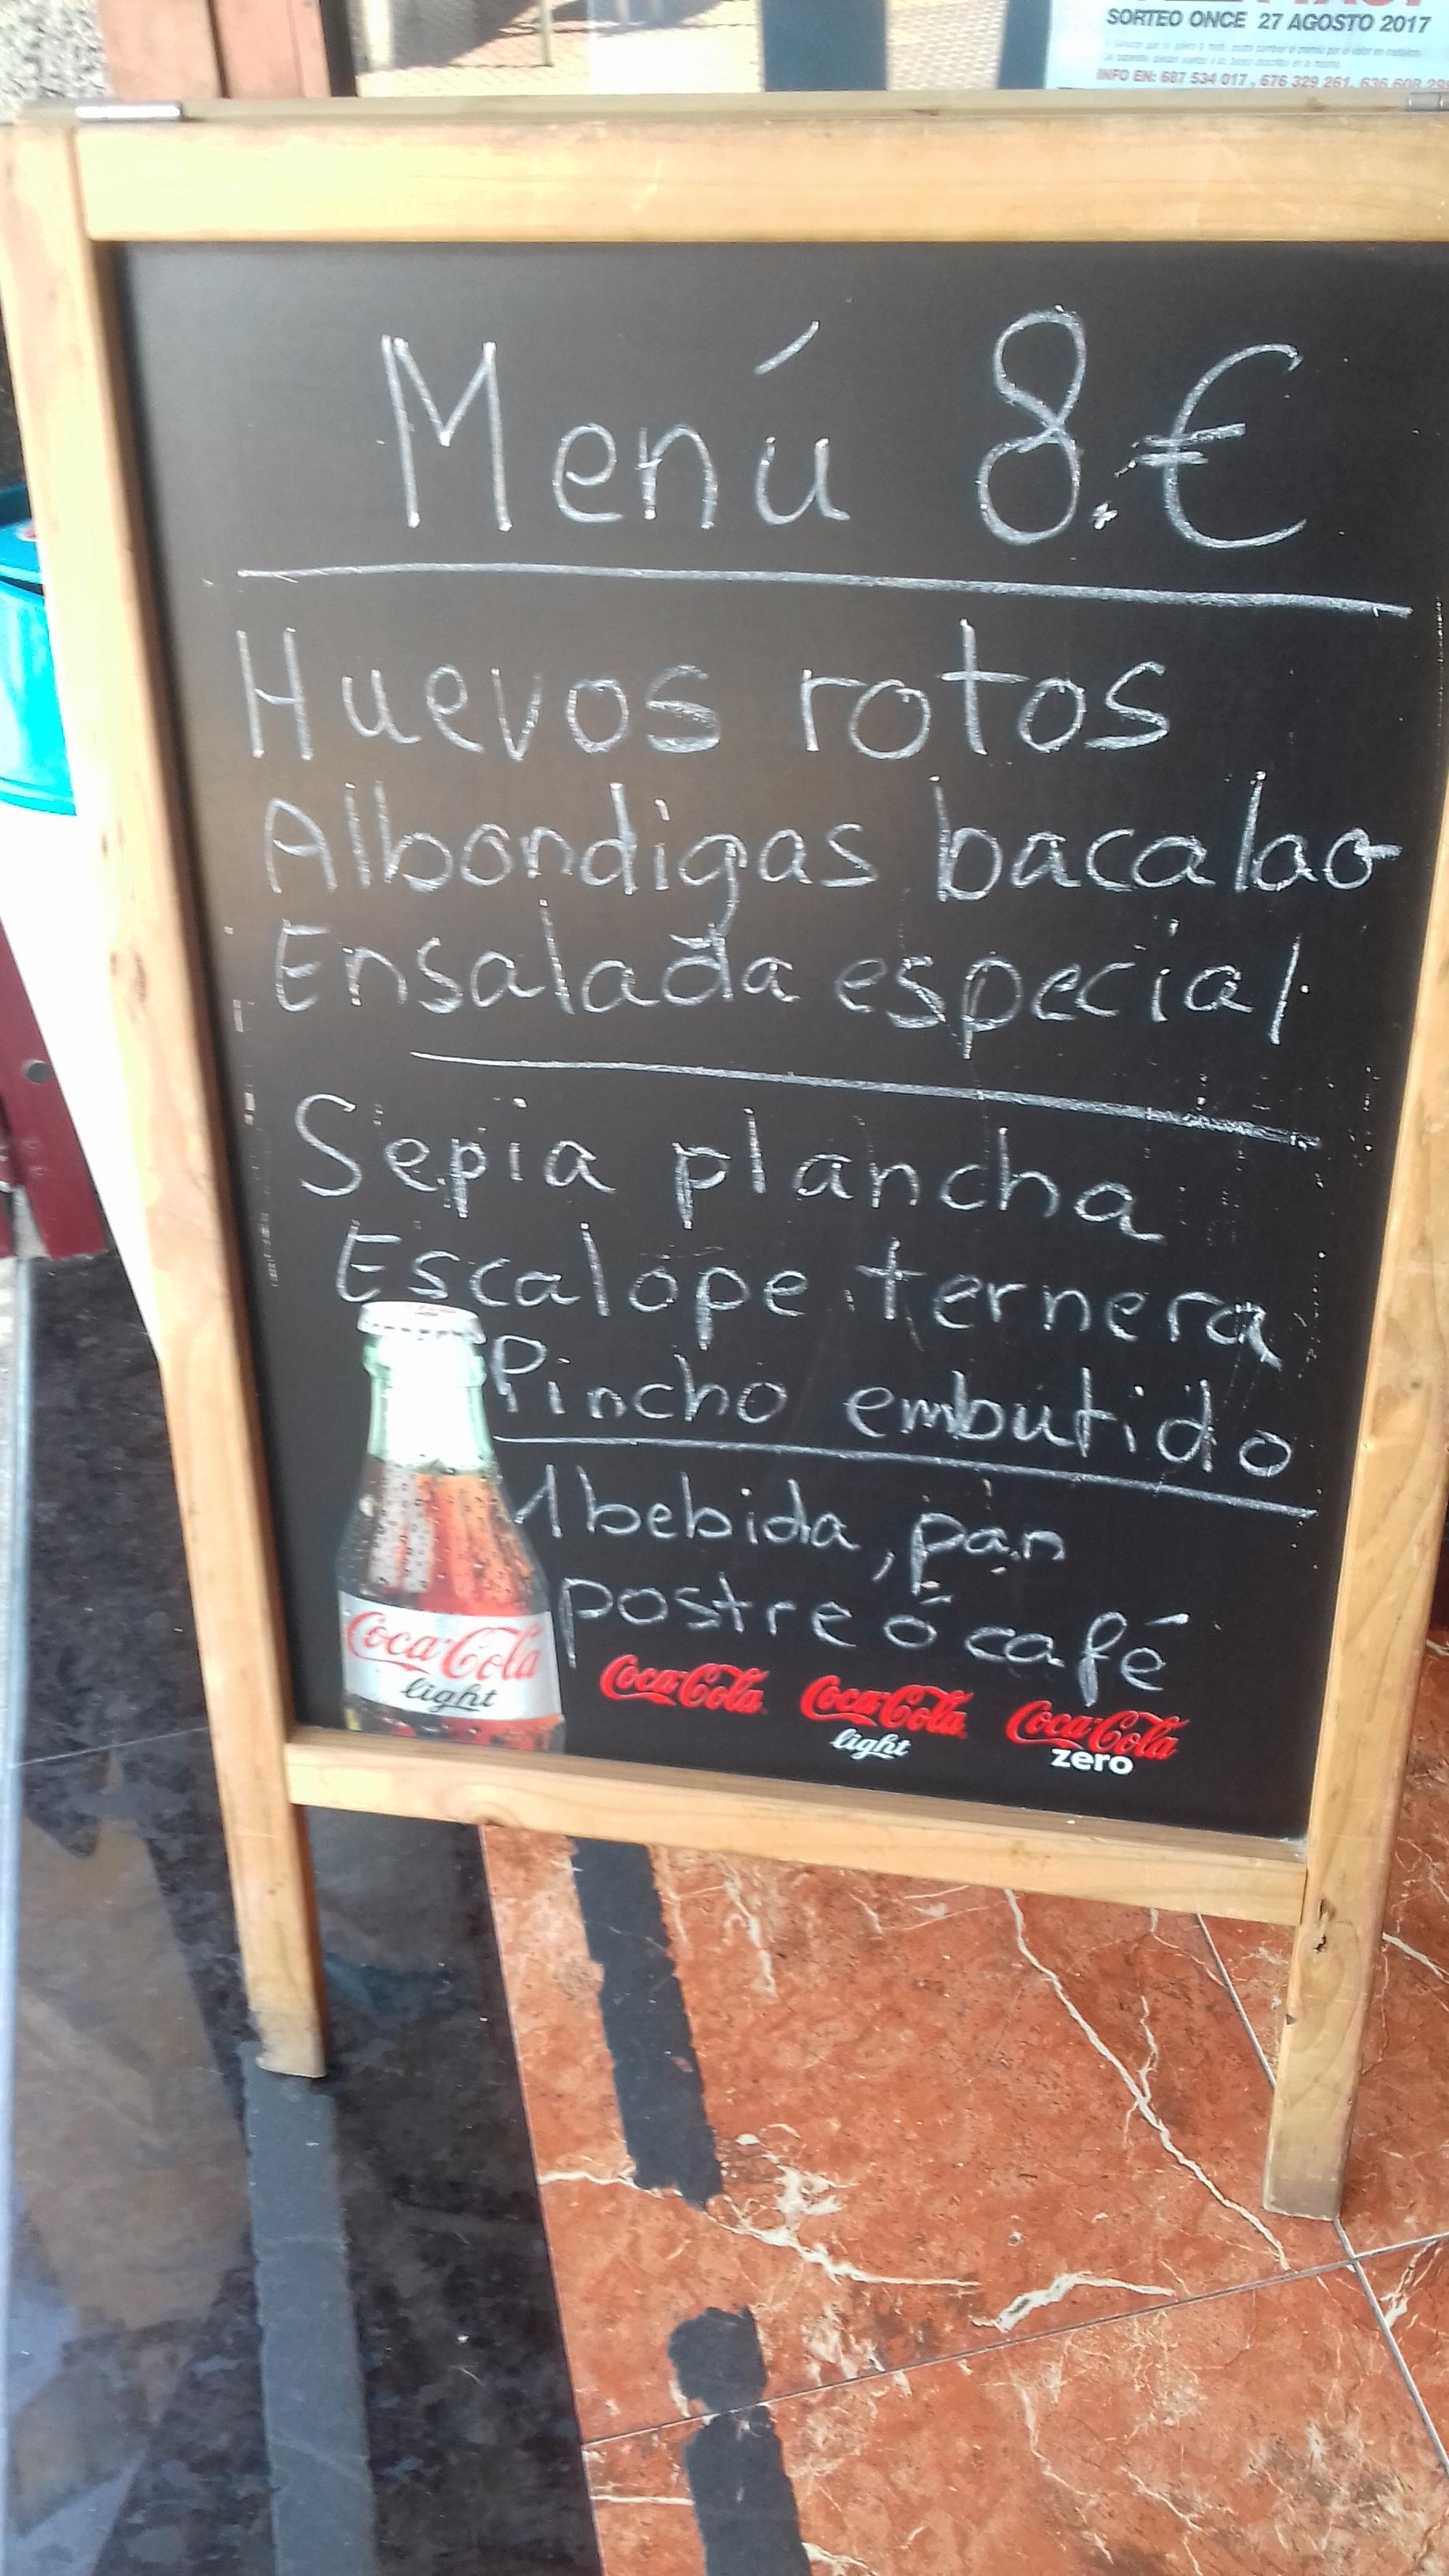 SORTEO ONCE 27 AGOSTO 2017
INFO EN: 687 534 017, 676 329 261, 636 608
Menú 8.€
Huevos rotos
Albondigas bacalao
Ensalada especial
Sepia plancha
Escalope ternera
Pincho embutido
1 bebida, pan
postre ó café
Coca-Cola
light
Coca-Cola
Coca-Cola
light
Coca-Cola
zero